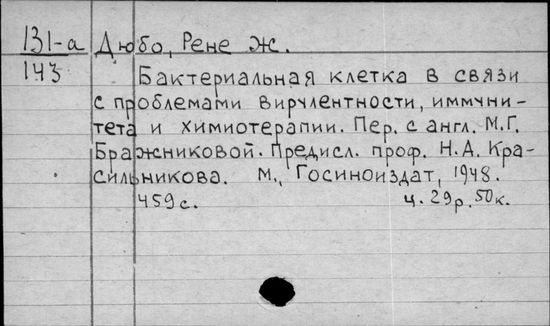 131-а Дюбо, Рене Ж.
143 Бактериальная клетка в связи
с проблемами вирулентности, иммуни-
тета и химиотерапии. Пер. с англ. М.Г.
Бражниковой. Предисл. проф. Н.А. Кра-
сильникова. М., Госиноиздат, 1948.
459с. ц. 29р. 50к.